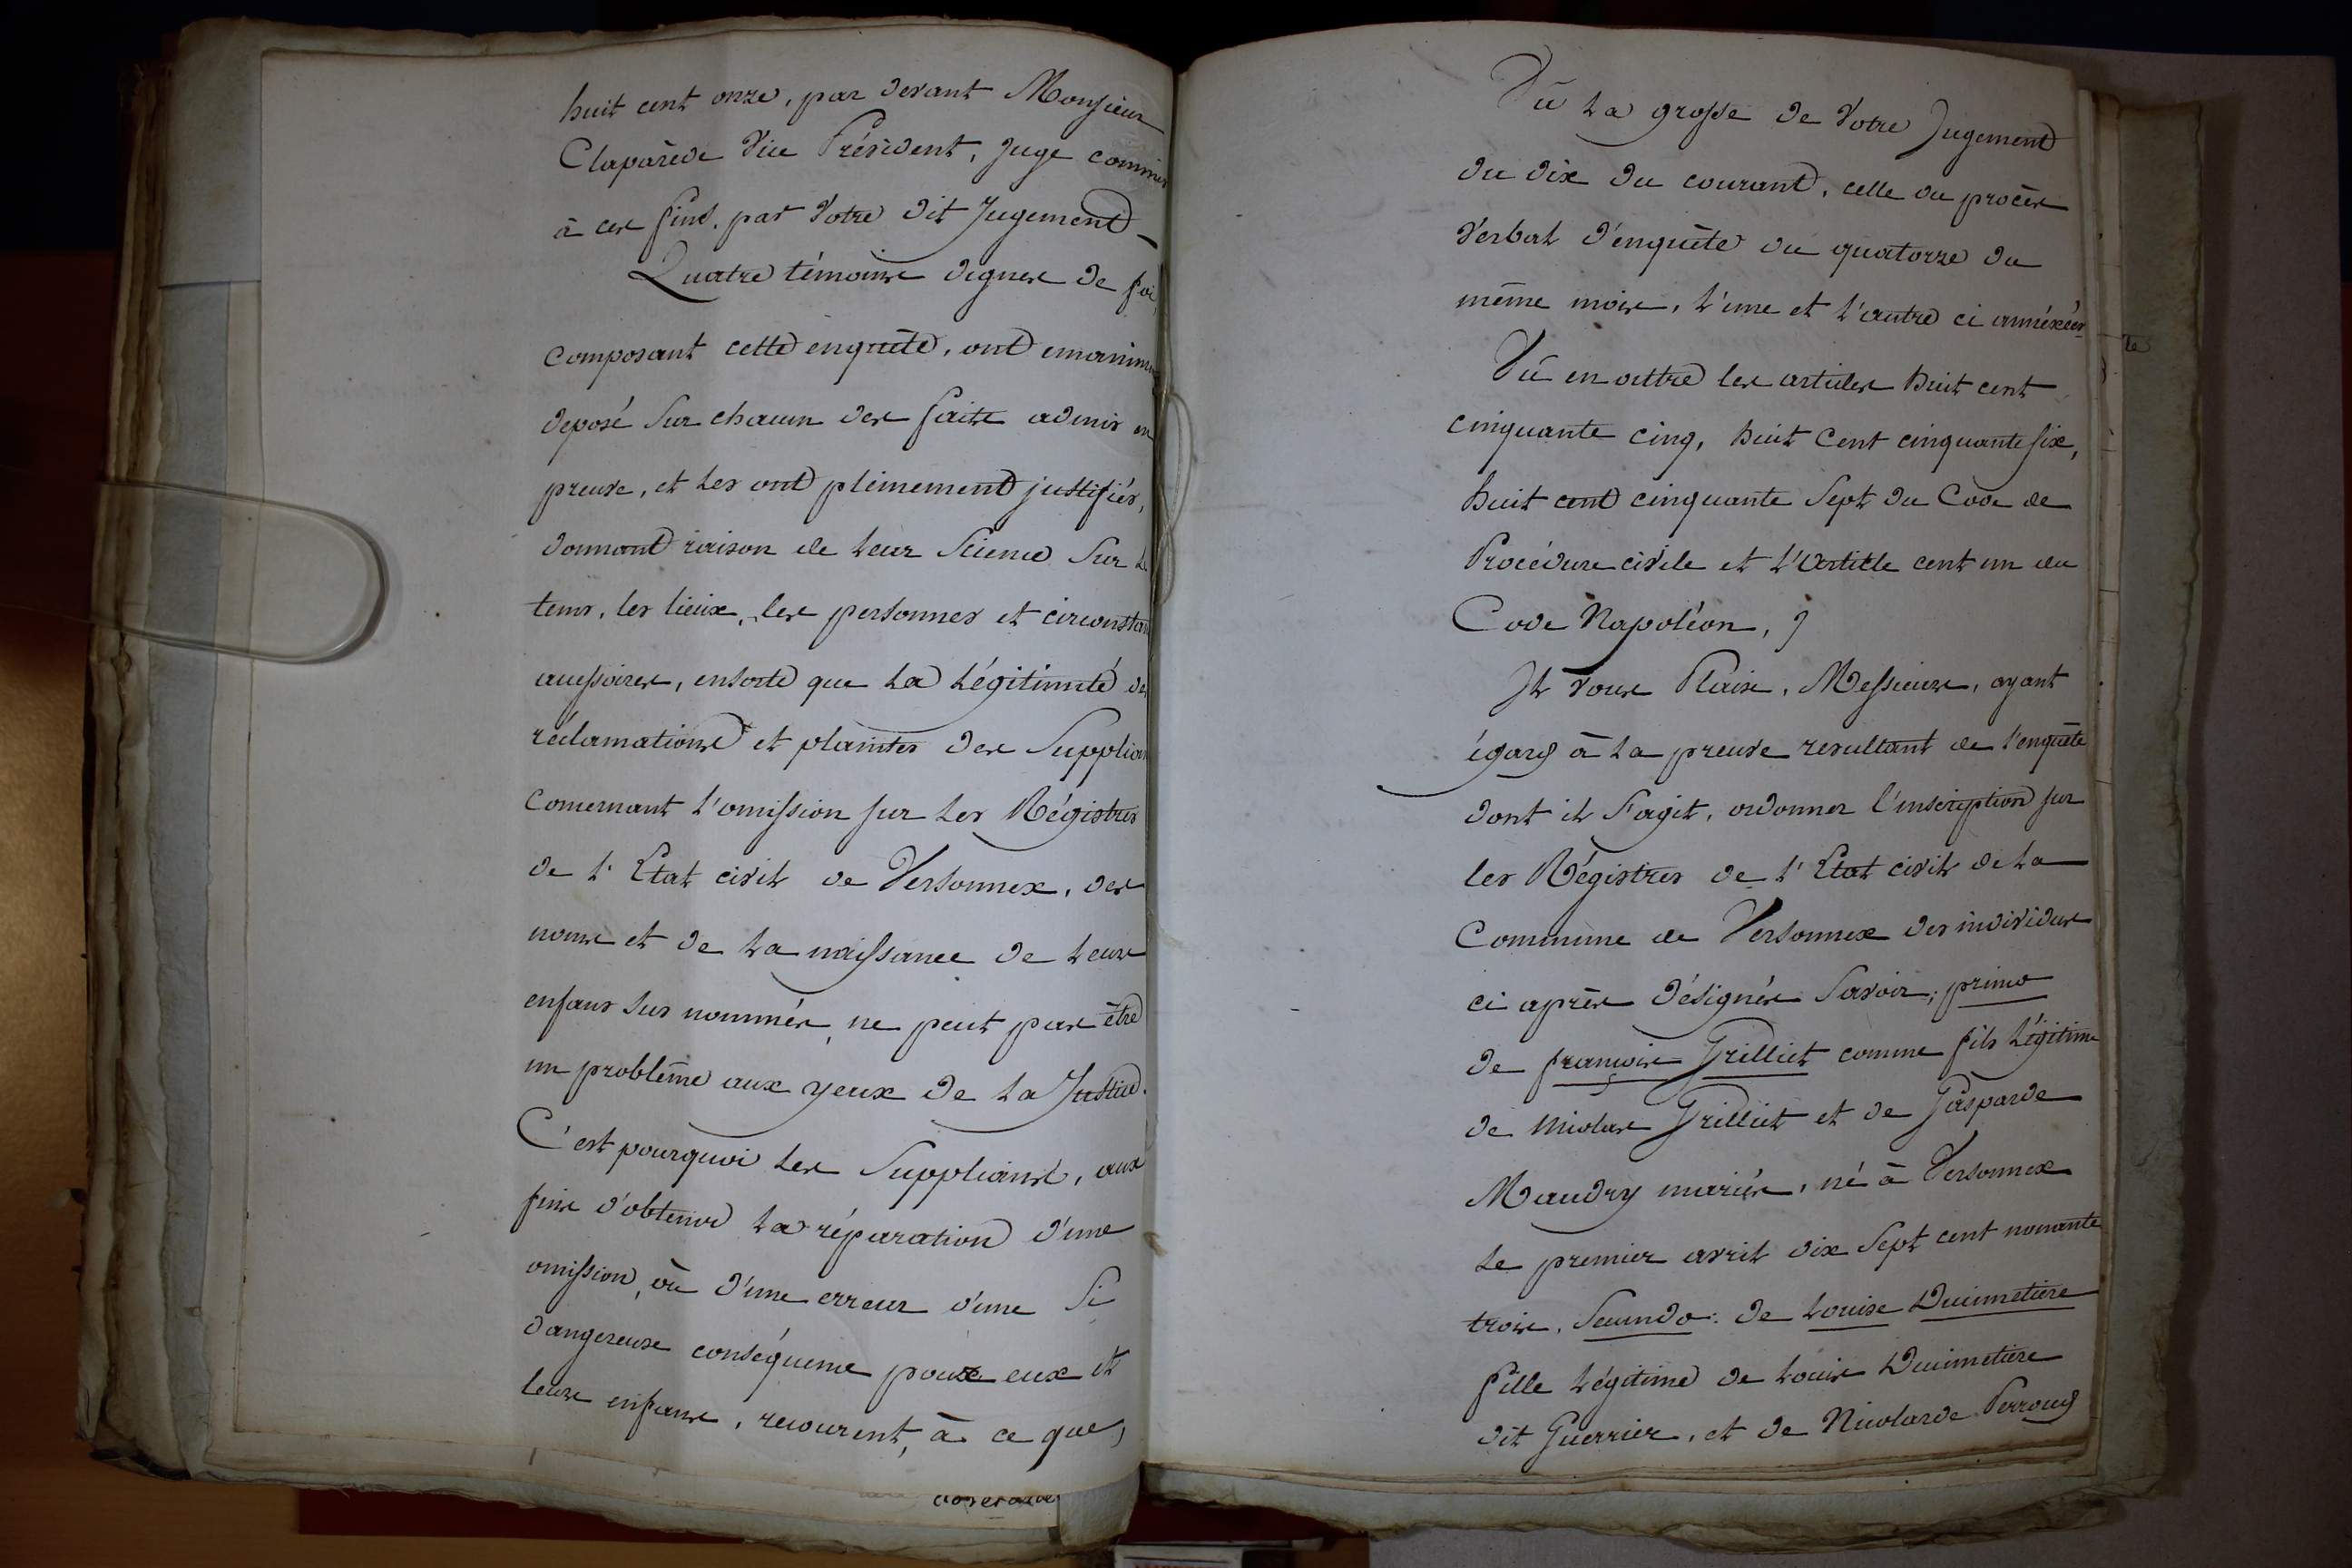 huit cent onze, par devant Monsieur
Claparède Vice Président, Juge commis
à ces fins, par Votre dit Jugement
Quatre témoins dignes de foi,
composant cette enquête, ont
deposé sur chacun des faits admis en
preuve, et les ont pleinement justifiés,
donnant raison de leur Science Sur le
tems, les lieux, les personnes et circonstan
accessoires, ensorte que la légitimité des
réclamations et plaintes des Supplian
concernant l'omission sur les Régistres
de l'Etat civil de Versonnex, des
noms et de la naissance de leurs
enfans sus nommés, ne peut pas être
un problême aux yeux de la Justice.
C'est pourquoi les Suppliants, aux
fins d'obtenir la réparation d'une
omission, ou d'une erreur d'une Si
dangereuse conséquence pour eux et
leurs enfans, recourent, à ce que,
Vû la grosse de Votre Jugement
du dix du courant, celle du procès
Verbal d'enquête du quatorze du
même mois, l'une et l'autre ci annéxées
Vû en outre les articles huit cent
cinquante cinq, huit Cent cinquante six,
huit cent cinquante Sept du Code de
Procédure civile et l'Article cent un du
Code Napoléon,
Il Vous Plaise, Messieurs, ayant
égard à la preuve resultant de l'enquête
dont il s'agit, ordonner l'inscription sur
les Régistres de l'Etat civil de la
Commune de Versonnex des individus
ci après désignés Savoir; primo
de françois Grilliet comme fils légitime
de Nicolas Grilliet et de Gasparde
Maudry mariés, né à Versonnex
le premier avril dix Sept cent nonante
trois, Secundo: de Louise Duimetiere
fille légitime de Louis Duimetiere
dit Guerrier, et de Nicolarde Perroud